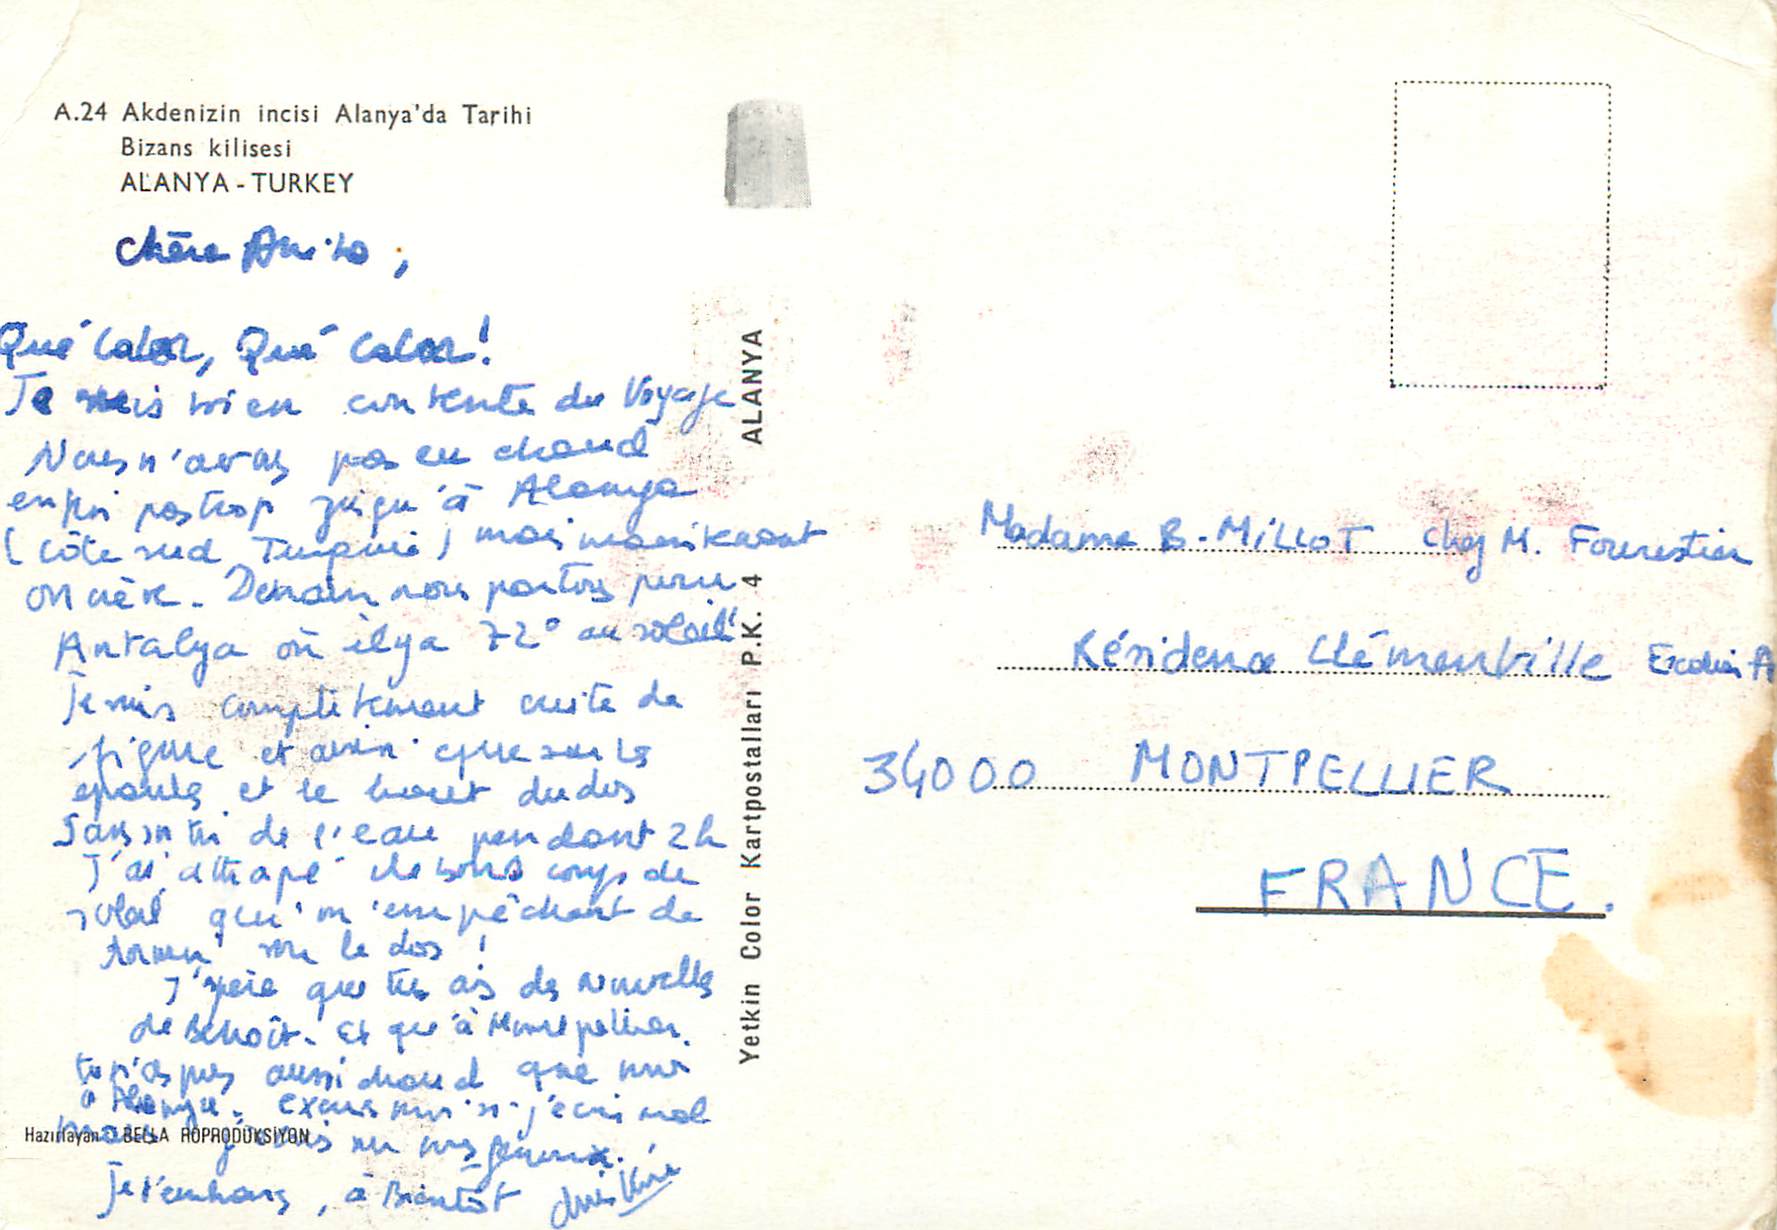 A.24 Akdenizin incisi Alanya'da Tarihi
Bizans kilisesi
ALANYA - TURKEY
Chère
Qué Calor, Qué Calor!
Je suis bien contente du Voyage
Nous n'avons pas eu chaud
enfin pas trop jusqu'à Alanya
(côte sud Turquie) mais maintenant
on crève. Demain nous partons pour
Antalya où il y a 72° au soleil!
Je suis complètement cuite de
figure et ainsi que sur les
épaules et le haut du dos
Sans sortir de l'eau pendant 2h
J'ai attrapé des bons coups de
soleil qui m'empêchent de
dormir sur le dos!
J'espère que tu as des Nouvelles
de Benoît. Et qu'à Montpellier
tu n'as pas aussi chaud que moi
à Alanya. excuse moi si j'écris mal
mais j'écris sur mes genoux.
Je t'embrasse, à Bientôt
Hazırlayan: BELLA ROPRODÜKSİYON
Yetkin Color Kartpostalları P.K. 4 ALANYA
Madame B. MILLOT chez M. Fourestier
Résidence Clémentville A
34000 MONTPELLIER
FRANCE.